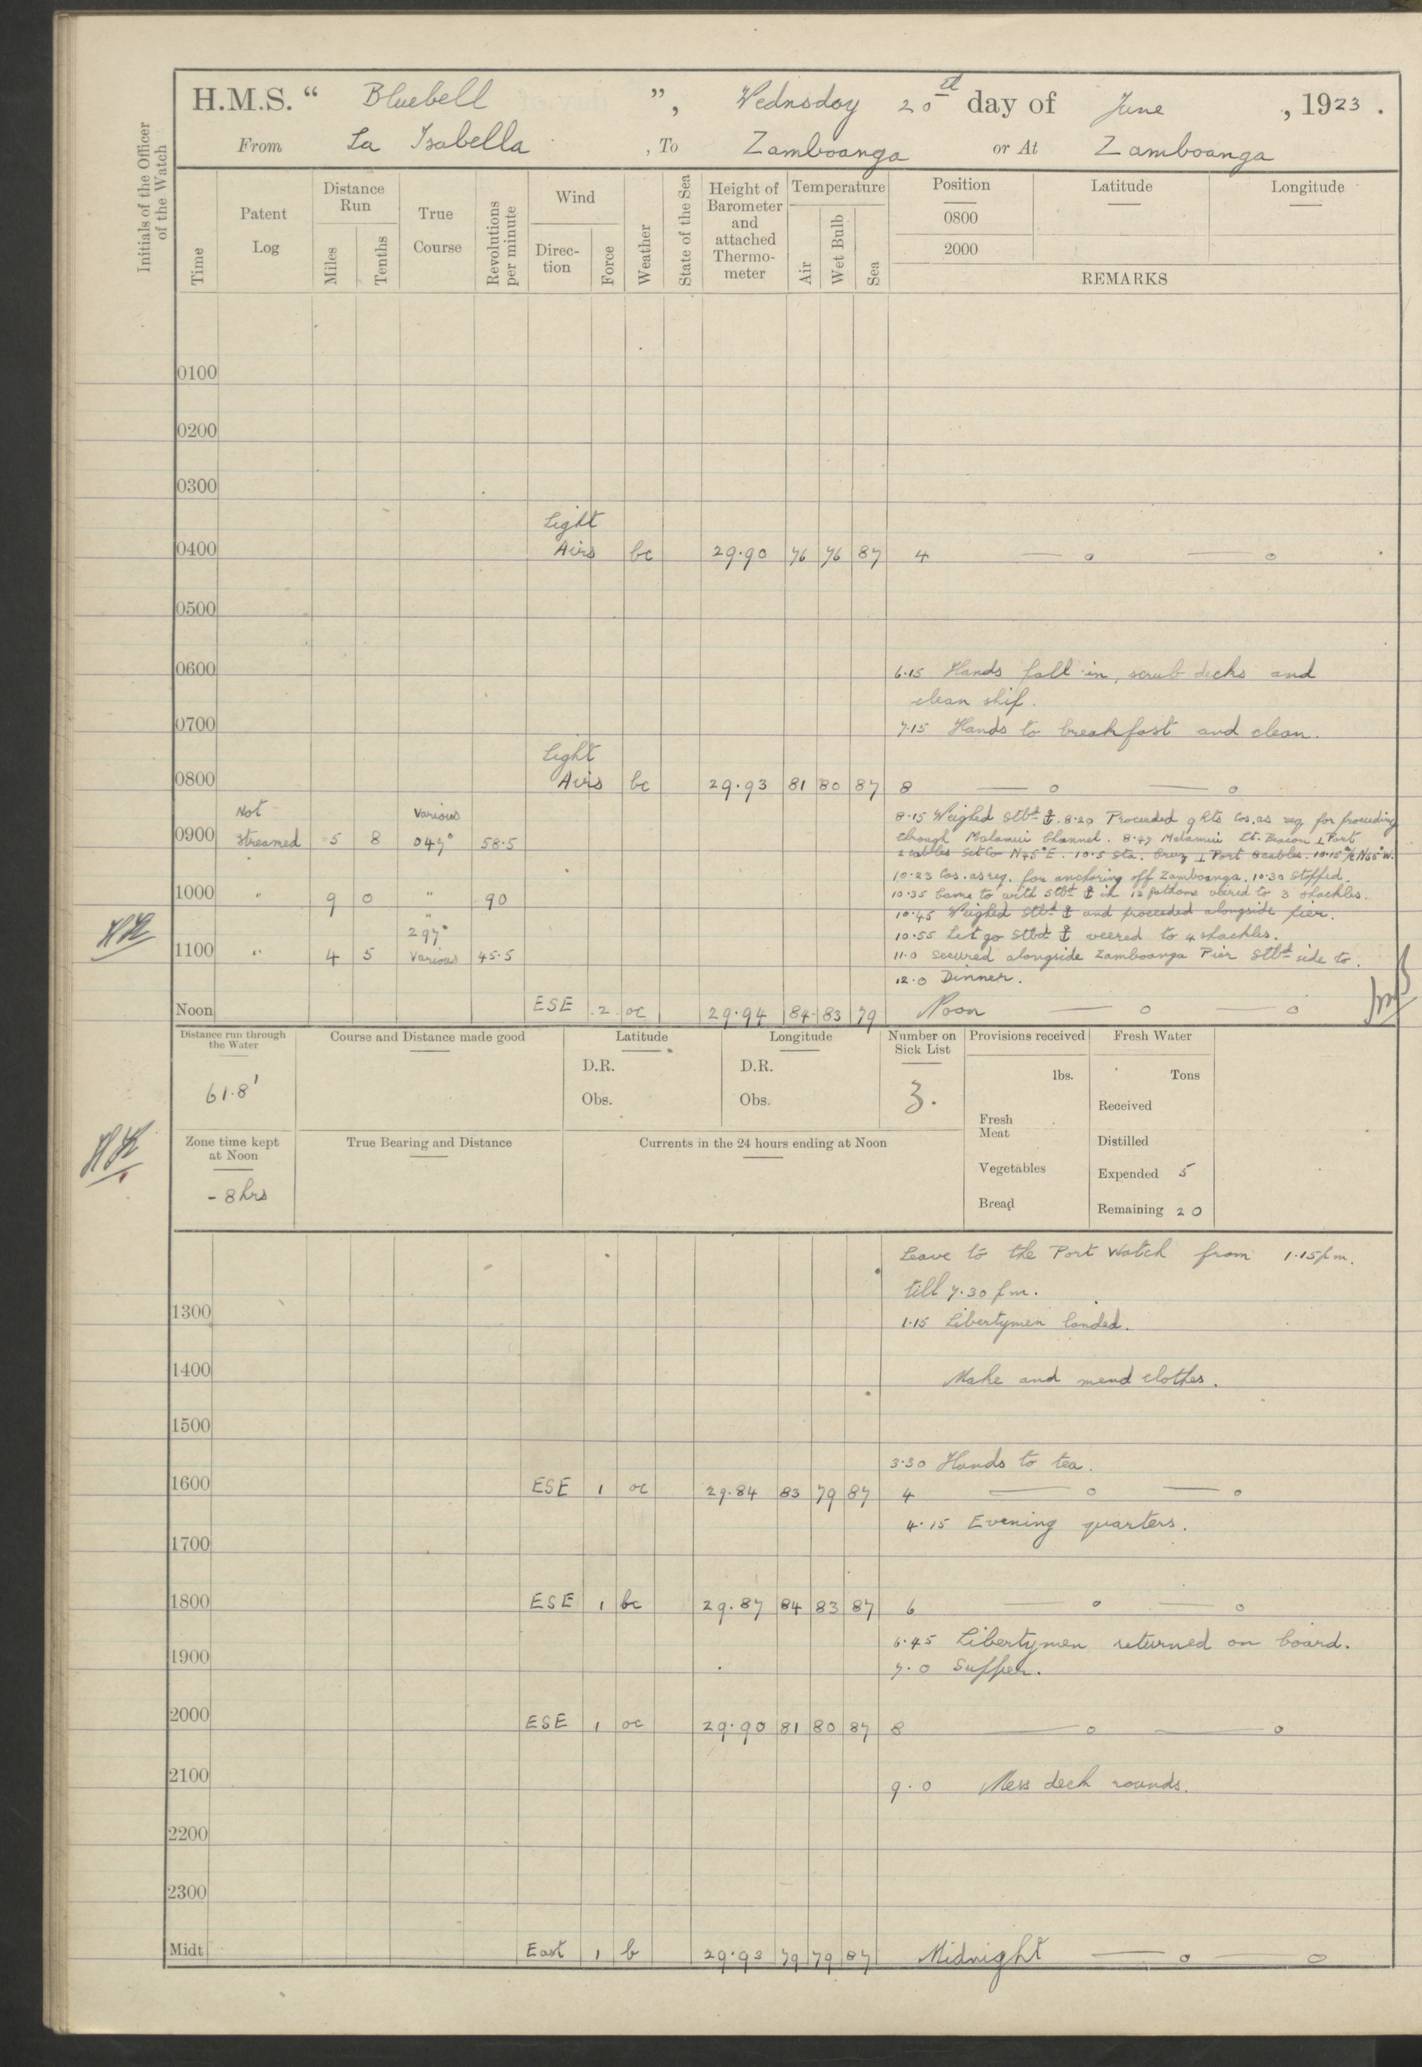 H.M.S. “ Bluebell ”, Wednsday 20th day of June , 1923 .
From La Isabella , To Zamboanga or At Zamboanga
Initials of the Officer of the Watch
Time
Patent Log
Distance Run
Miles Tenths
True Course
Revolutions per minute
Wind
Direc-tion Force
Weather
State of the Sea
Height of Barometer and attached Thermo-meter
Temperature
Air Wet Bulb Sea
Position Latitude Longitude
0800
2000
REMARKS
0100
0200
0300
Light
0400 Airs bc 29.90 76 76 87 4 — o — o
0500
0600 6.15 Hands fall in, scrub decks and
clean ship.
0700 7.15 Hands to breakfast and clean.
Light
0800 Airs bc 29.93 81 80 87 8 — o — o
Not Various
8.15 Weighed Stbd ⚓. 8.20 Proceeded Cos. as req for proceeding
0900 Streamed 5 8 047° 58.5
through Malamui Channel. 8.47 Malamui Lt. Beacon ⊥ Port
2 cables Set Co N45°E. 10.5 Sta. Buoy ⊥ Port 8 cables. 10.15 a/c N55°W.
10.23 Cos. as req. for anchoring off Zamboanga. 10.30 Stopped.
1000 " 9 0 " 90
10.35 Came to with Stbd ⚓ in 12 fathoms veered to 3 shackles.
10.45 Weighed Stbd ⚓ and proceeded alongside pier.
" 297°
10.55 Let go Stbd ⚓ veered to 4 shackles.
1100 " 4 5 Various 45.5
11.0 Secured alongside Zamboanga Pier Stbd side to.
12.0 Dinner.
Noon ESE 2 oc 29.94 84 83 79 Noon — o — o
Distance run through the Water
61.8'
Course and Distance made good
Latitude
D.R.
Obs.
Longitude
D.R.
Obs.
Number on Sick List
3.
Provisions received
lbs.
Fresh Meat
Vegetables
Bread
Fresh Water
Tons
Received
Distilled
Expended 5
Remaining 20
Zone time kept at Noon
- 8 hrs
True Bearing and Distance
Currents in the 24 hours ending at Noon
Leave to the Port Watch from 1.15 p.m.
till 7.30 p.m.
1300 1.15 Libertymen landed.
1400 Make and mend clothes.
1500
3.30 Hands to tea.
1600 ESE 1 oc 29.84 83 79 87 4 — o — o
4.15 Evening quarters.
1700
1800 ESE 1 bc 29.87 84 83 87 6 — o — o
6.45 Libertymen returned on board.
1900 7.0 Supper.
2000 ESE 1 oc 29.90 81 80 87 8 — o — o
2100 9.0 Mess deck rounds.
2200
2300
Midt East 1 b 29.93 79 79 87 Midnight — o — o